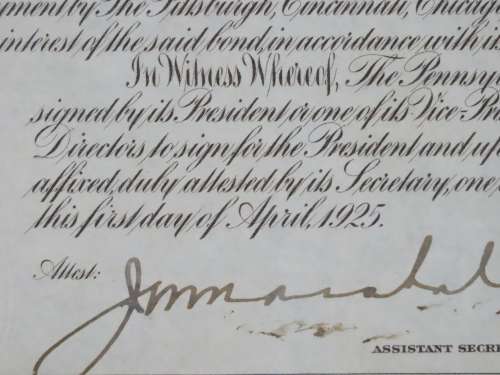 ment by The Pittsburgh, Cincinnati, Chicago
interest of the said bond, in accordance with it
In Witness Whereof, The Pennsy
signed by its President or one of its Vice-Pre
Directors to sign for the President and up
affixed, duly attested by its Secretary, one
this first day of April, 1925.
Attest:
ASSISTANT SECRE